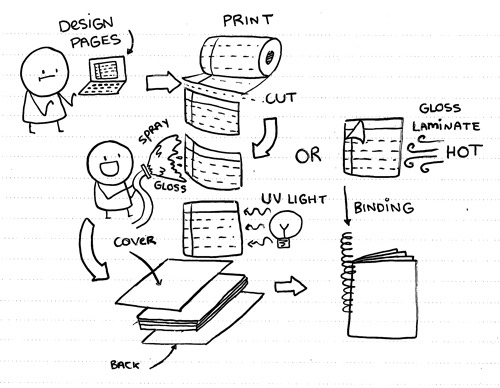 DESIGN
PAGES
PRINT
CUT
SPRAY
GLOSS
OR
GLOSS
LAMINATE
HOT
UV LIGHT
BINDING
COVER
BACK